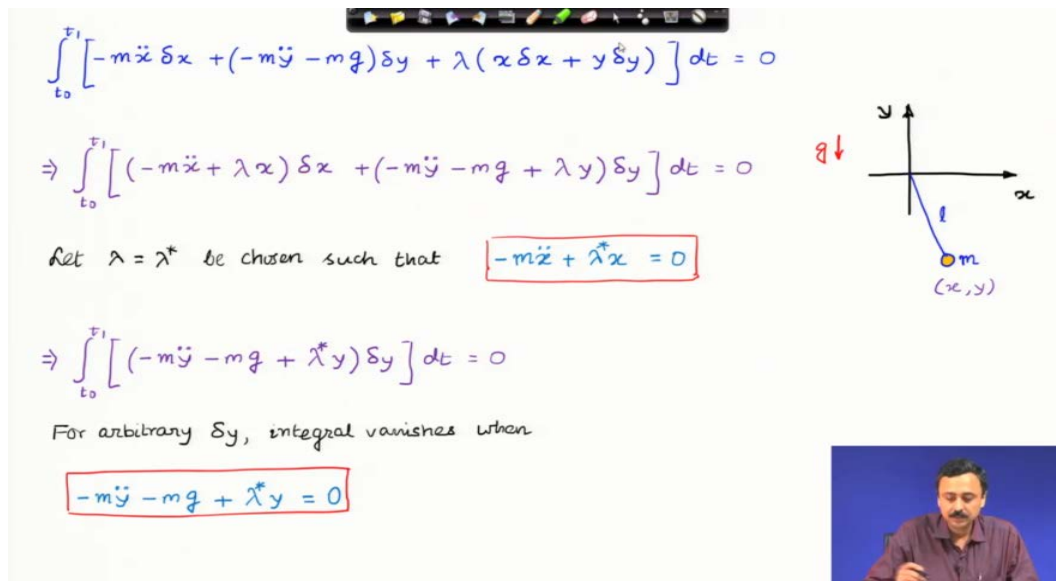 ∫_{t₀}^{t₁} [-mẍ δx + (-mÿ - mg)δy + λ(xδx + yδy)] dt = 0
⇒ ∫_{t₀}^{t₁} [(-mẍ + λx)δx + (-mÿ - mg + λy)δy] dt = 0
Let λ = λ* be chosen such that -mẍ + λ*x = 0
⇒ ∫_{t₀}^{t₁} [(-mÿ - mg + λ*y)δy] dt = 0
For arbitrary δy, integral vanishes when
-mÿ - mg + λ*y = 0
y
g↓
x
l
m
(x, y)